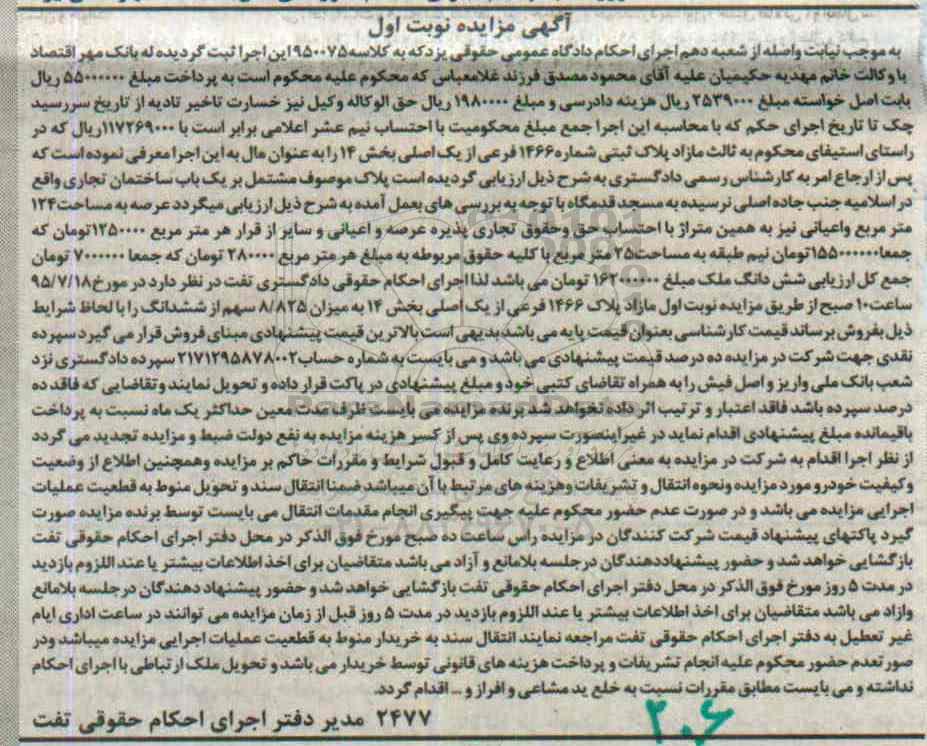 آگهی مزایده نوبت اول
به موجب نیابت واصله از شعبه دهم اجرای احکام دادگاه عمومی حقوقی یزد که به کلاسه ۹۵۰۰۷۵ این اجرا ثبت گردیده له بانک مهر اقتصاد
با وکالت خانم مهدیه حکیمیان علیه آقای محمود مصدق فرزند غلامعباس که محکوم علیه محکوم است به پرداخت مبلغ ۵۵۰۰۰۰۰۰ ریال
بابت اصل خواسته مبلغ ۲۵۳۹۰۰۰ ریال هزینه دادرسی و مبلغ ۱۹۸۰۰۰۰ ریال حق الوکاله وکیل نیز خسارت تاخیر تادیه از تاریخ سررسید
چک تا تاریخ اجرای حکم که با محاسبه این اجرا جمع مبلغ محکومیت با احتساب نیم عشر اعلامی برابر است با ۱۱۷۲۶۹۰۰۰ ریال که در
راستای استیفای محکوم به ثالث مازاد پلاک ثبتی شماره ۱۴۶۶ فرعی از یک اصلی بخش ۱۴ را به عنوان مال به این اجرا معرفی نموده است که
پس از ارجاع امر به کارشناس رسمی دادگستری به شرح ذیل ارزیابی گردیده است پلاک موصوف مشتمل بر یک باب ساختمان تجاری واقع
در اسلامیه جنب جاده اصلی نرسیده به مسجد قدمگاه با توجه به بررسی های بعمل آمده به شرح ذیل ارزیابی میگردد عرصه به مساحت ۱۲۴
متر مربع واعیانی نیز به همین متراژ با احتساب حق وحقوق تجاری پذیره عرصه و اعیانی و سایر از قرار هر متر مربع ۱۲۵۰۰۰۰ تومان که
جمعا ۱۵۵۰۰۰۰۰۰ تومان نیم طبقه به مساحت ۲۵ متر مربع با کلیه حقوق مربوطه به مبلغ هر متر مربع ۲۸۰۰۰۰ تومان که جمعا ۷۰۰۰۰۰۰ تومان
جمع کل ارزیابی شش دانگ ملک مبلغ ۱۶۲۰۰۰۰۰۰ تومان می باشد لذا اجرای احکام حقوقی دادگستری تفت در نظر دارد در مورخ ۹۵/۷/۱۸
ساعت ۱۰ صبح از طریق مزایده نوبت اول مازاد پلاک ۱۴۶۶ فرعی از یک اصلی بخش ۱۴ به میزان ۸/۸۲۵ سهم از ششدانگ را با لحاظ شرایط
ذیل بفروش برساند قیمت کارشناسی بعنوان قیمت پایه می باشد بدیهی است بالاترین قیمت پیشنهادی مبنای فروش قرار می گیرد سپرده
نقدی جهت شرکت در مزایده ده درصد قیمت پیشنهادی می باشد و می بایست به شماره حساب ۲۱۷۱۲۹۵۸۷۸۰۰۲ سپرده دادگستری نزد
شعب بانک ملی واریز و اصل فیش را به همراه تقاضای کتبی خود و مبلغ پیشنهادی در پاکت قرار داده و تحویل نمایند و تقاضایی که فاقد ده
درصد سپرده باشد فاقد اعتبار و ترتیب اثر داده نخواهد شد برنده مزایده می بایست ظرف مدت معین حداکثر یک ماه نسبت به پرداخت
باقیمانده مبلغ پیشنهادی اقدام نماید در غیراینصورت سپرده وی پس از کسر هزینه مزایده به نفع دولت ضبط و مزایده تجدید می گردد
از نظر اجرا اقدام به شرکت در مزایده به معنی اطلاع و رعایت کامل و قبول شرایط و مقررات حاکم بر مزایده وهمچنین اطلاع از وضعیت
وکیفیت خودرو مورد مزایده ونحوه انتقال و تشریفات وهزینه های مرتبط با آن میباشد ضمنا انتقال سند و تحویل منوط به قطعیت عملیات
اجرایی مزایده می باشد و در صورت عدم حضور محکوم علیه جهت پیگیری انجام مقدمات انتقال می بایست توسط برنده مزایده صورت
گیرد پاکتهای پیشنهاد قیمت شرکت کنندگان در مزایده راس ساعت ده صبح مورخ فوق الذکر در محل دفتر اجرای احکام حقوقی تفت
بازگشایی خواهد شد و حضور پیشنهاددهندگان درجلسه بلامانع و آزاد می باشد متقاضیان برای اخذ اطلاعات بیشتر یا عند اللزوم بازدید
در مدت ۵ روز مورخ فوق الذکر در محل دفتر اجرای احکام حقوقی تفت بازگشایی خواهد شد و حضور پیشنهاد دهندگان در جلسه بلامانع
وازاد می باشد متقاضیان برای اخذ اطلاعات بیشتر یا عند اللزوم بازدید در مدت ۵ روز قبل از زمان مزایده می توانند در ساعت اداری ایام
غیر تعطیل به دفتر اجرای احکام حقوقی تفت مراجعه نمایند انتقال سند به خریدار منوط به قطعیت عملیات اجرایی مزایده میباشد ودر
صورتعدم حضور محکوم علیه انجام تشریفات و پرداخت هزینه های قانونی توسط خریدار می باشد و تحویل ملک ارتباطی با اجرای احکام
نداشته و می بایست مطابق مقررات نسبت به خلع ید مشاعی و افراز و ... اقدام گردد.
۲۴۷۷ مدیر دفتر اجرای احکام حقوقی تفت
۲۰۶